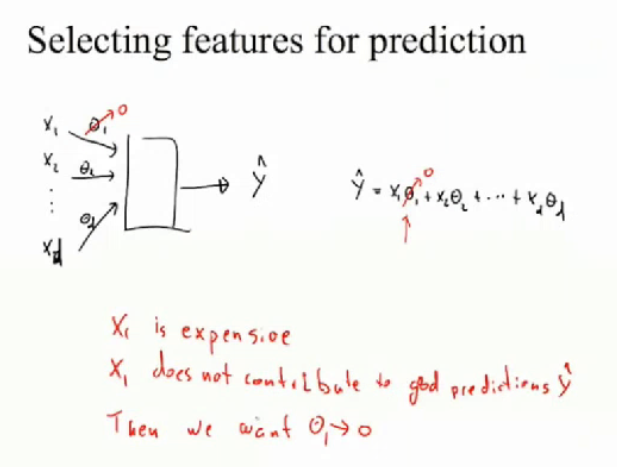 Selecting features for prediction
x₁ θ₁ → 0
x₂ θ₂
⋮
x_d θ_d
ŷ
ŷ = x₁θ₁ → 0 + x₂θ₂ + ... + x_dθ_d
x₁ is expensive
x₁ does not contribute to good predictions ŷ
Then we want θ₁ → 0